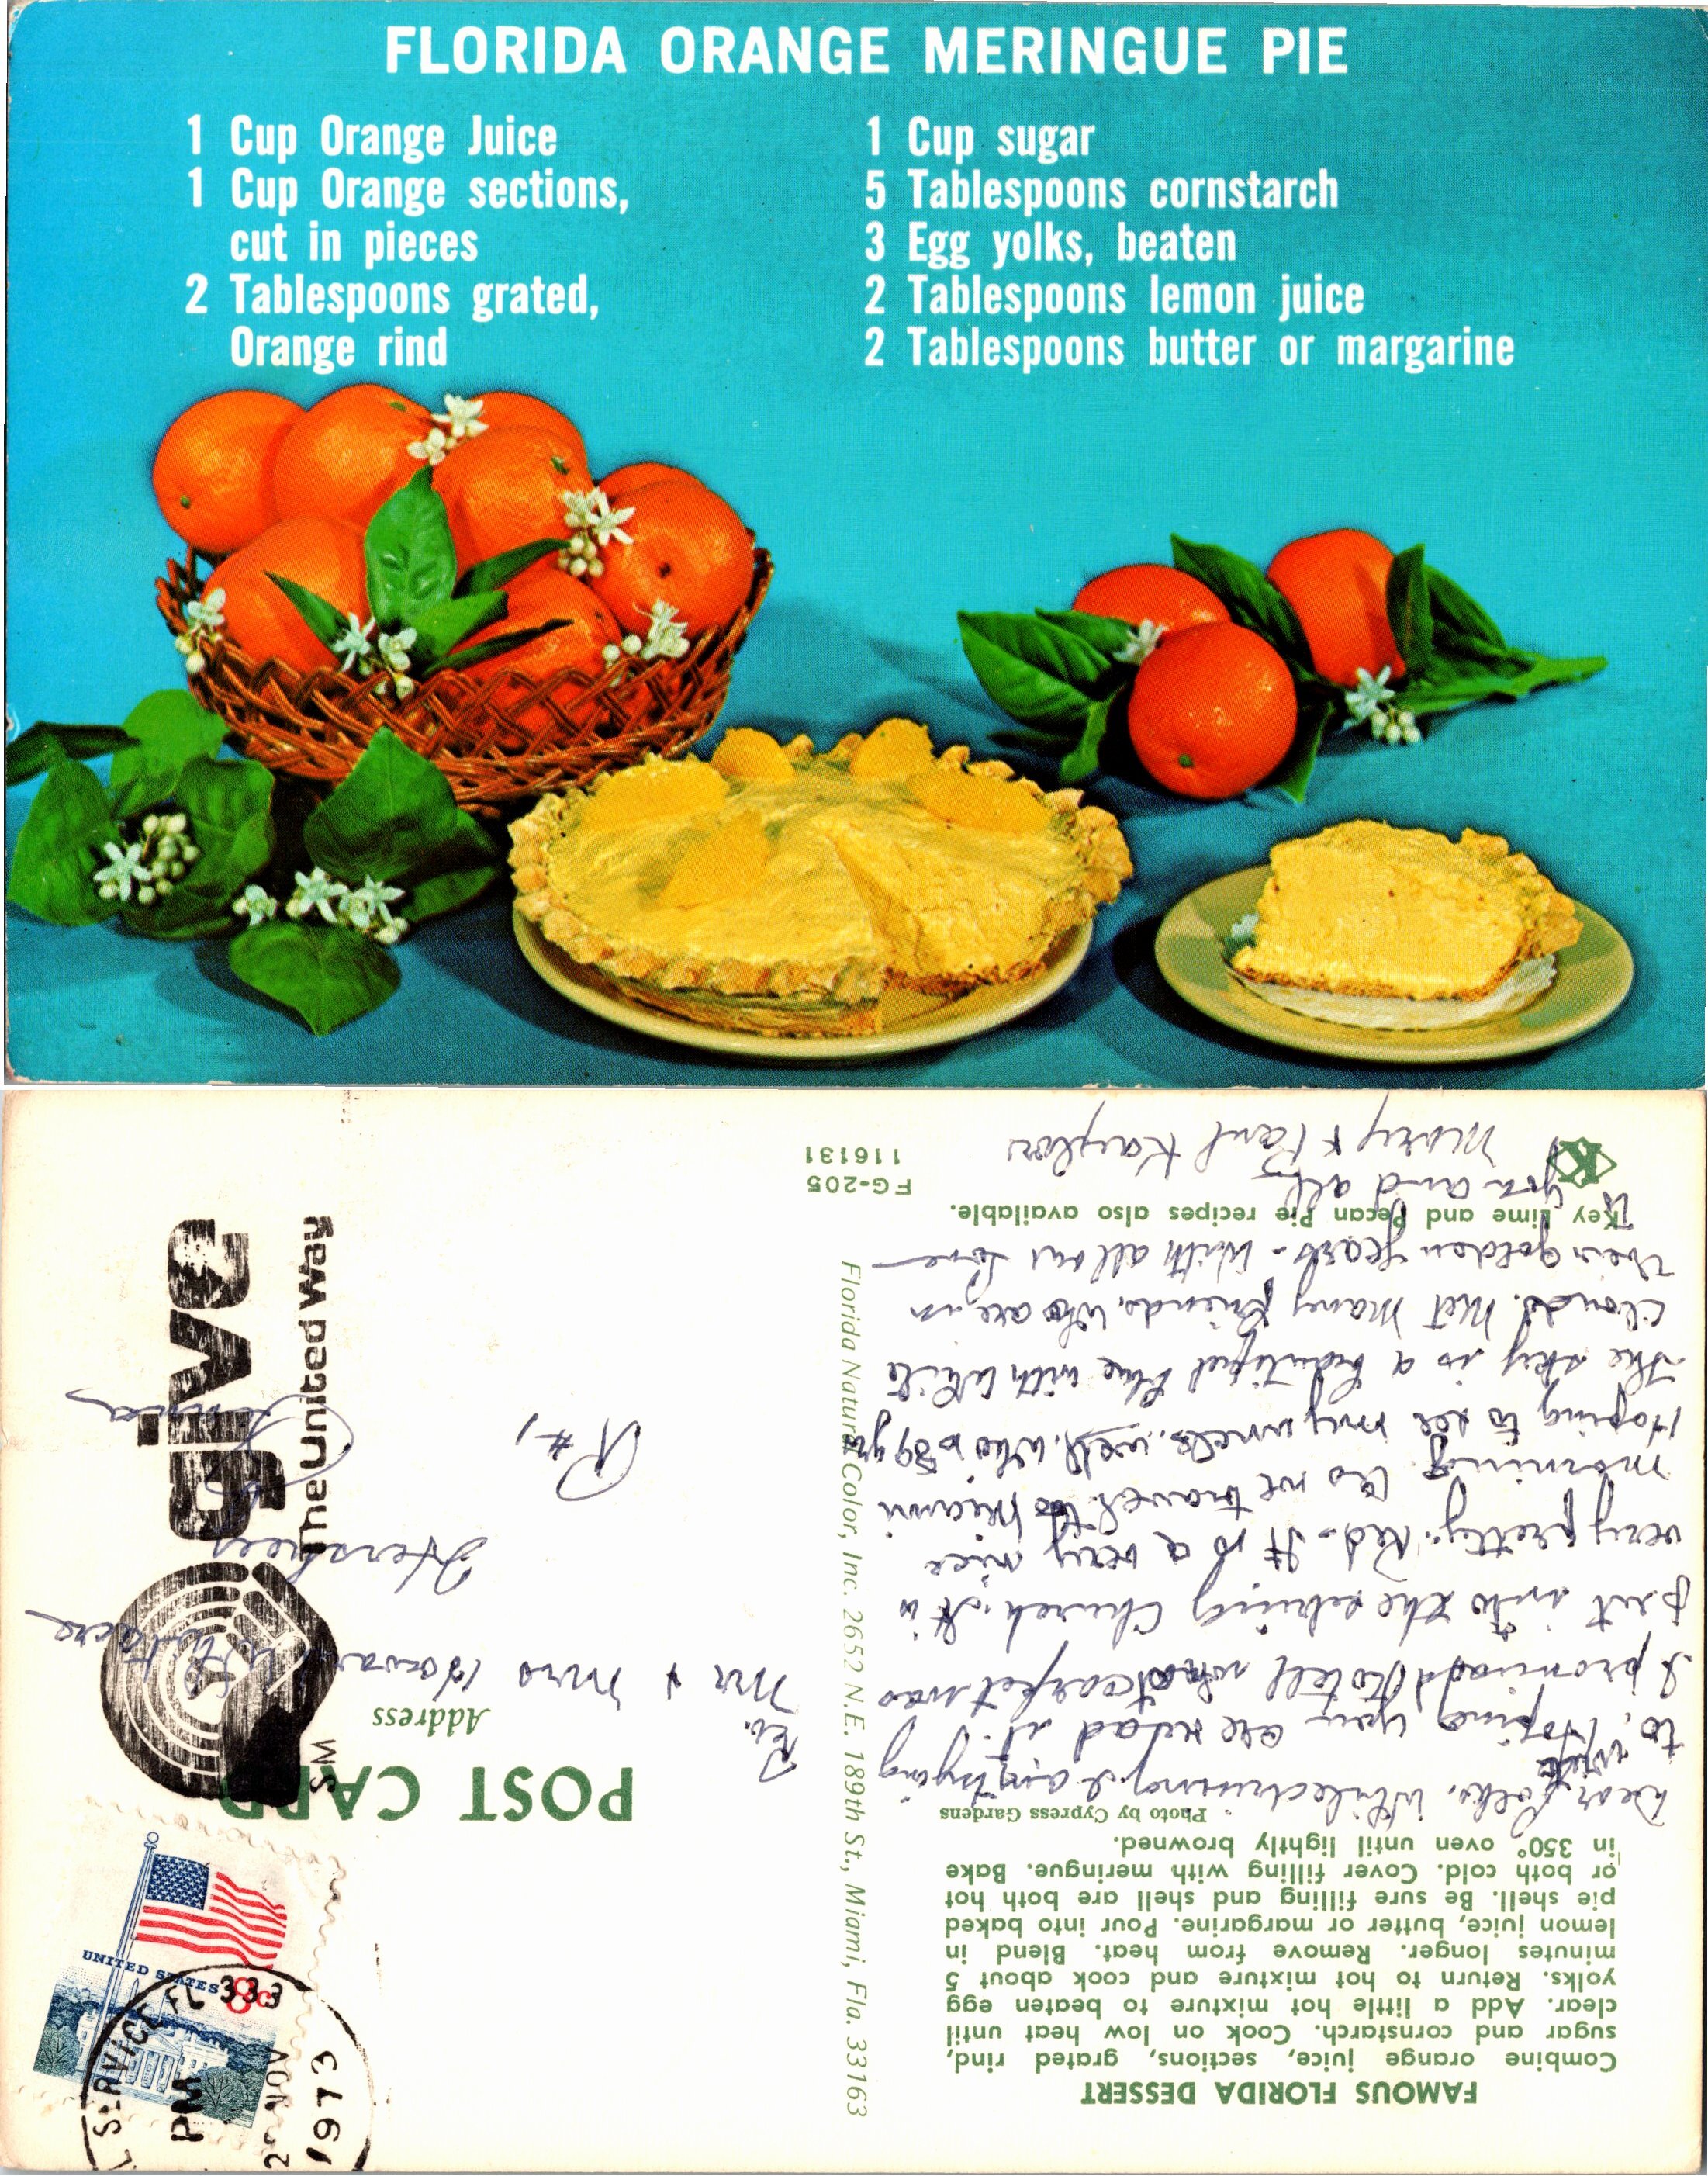 FLORIDA ORANGE MERINGUE PIE
1 Cup Orange Juice
1 Cup Orange sections,
cut in pieces
2 Tablespoons grated,
Orange rind
1 Cup sugar
5 Tablespoons cornstarch
3 Egg yolks, beaten
2 Tablespoons lemon juice
2 Tablespoons butter or margarine
FAMOUS FLORIDA DESSERT
Combine orange juice, sections, grated rind,
sugar and cornstarch. Cook on low heat until
clear. Add a little hot mixture to beaten egg
yolks. Return to hot mixture and cook about 5
minutes longer. Remove from heat. Blend in
lemon juice, butter or margarine. Pour into baked
pie shell. Be sure filling and shell are both hot
or both cold. Cover filling with meringue. Bake
in 350° oven until lightly browned.
Photo by Cypress Gardens
Dear folks, While I am trying
to write, Hoping you are
I promised to tell what carpet was
put into the Church. It is
very pretty. Red. It is a very nice
morning. As we travel to Miami
Hoping to see my uncle who is 89 yr
The sky is a beautiful blue with white
clouds. Met many friends, who are in
their golden years. With all our Love
to you and all
Mary & Paul Kaylor
Key Lime and Pecan Pie recipes also available.
K
FG-205
116131
Florida Natural Color, Inc. 2652 N.E. 189th St., Miami, Fla. 33163
POST CARD
Address
Mr & Mrs Howard
R #1
UNITED STATES 8c
SERVICE FL 333
PM
NOV
1973
give
The United Way
SM